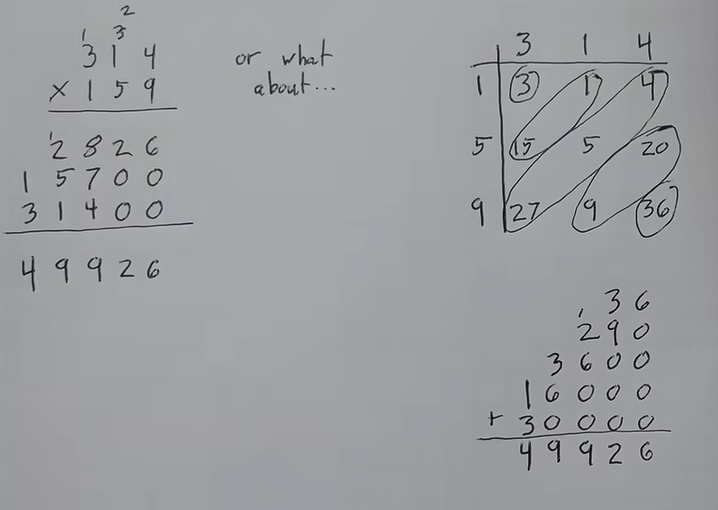 2
1 3
3 1 4
× 1 5 9
1
2 8 2 6
1 5 7 0 0
3 1 4 0 0
4 9 9 2 6
or what
about...
3 1 4
1 3 1 4
5 15 5 20
9 27 9 36
3 6
1
2 9 0
3 6 0 0
1 6 0 0 0
+ 3 0 0 0 0
4 9 9 2 6